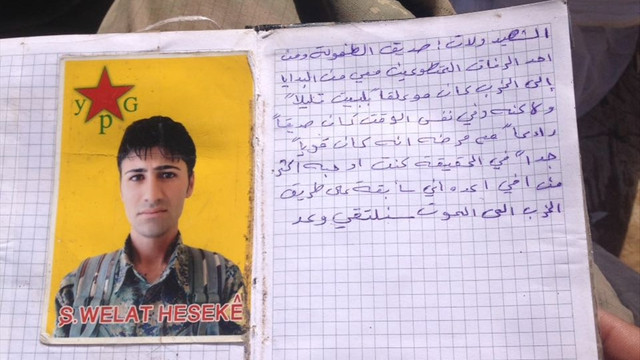 YPG
Ş. WELAT HESEKÊ
الشهيد ولات: صديق الطفولة ومن
احد الرفاق المتطوعين معي من البداية
إلى الحرب كان
ولاكنه وفي نفس الوقت كان صديقاً
من مرضه انه كان قوياً
جداً في الحقيقة كنت احبه اكثر
من اخي على طريق
الحرب الى الموت سنلتقي وعد